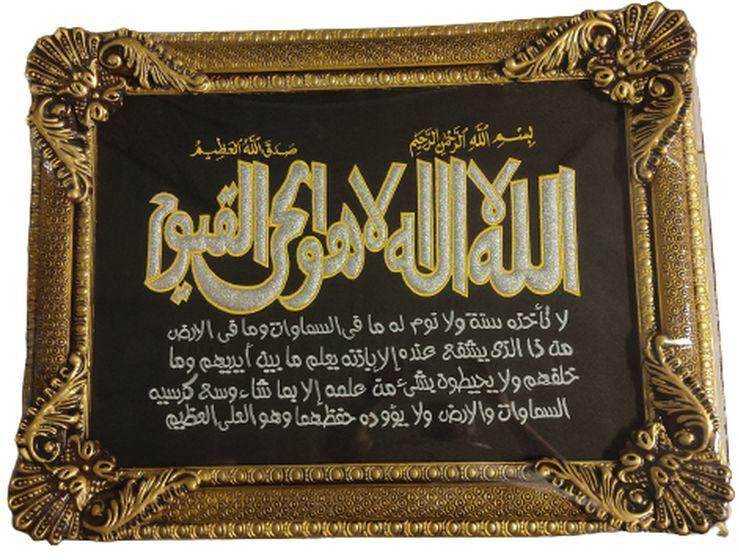 بِسْمِ اللَّهِ الرَّحْمٰنِ الرَّحِيْمِ
صَدَقَ اللَّهُ الْعَظِيْمُ
الله لا اله الا هو الحى القيوم
لا تأخذه سنة ولا نوم له ما فى السماوات وما فى الارض
من ذا الذى يشفع عنده إلا بإذنه يعلم ما بين أيديهم وما
خلفهم ولا يحيطون بشئ من علمه إلا بما شاء وسع كرسيه
السماوات والارض ولا يؤوده حفظهما وهو العلى العظيم